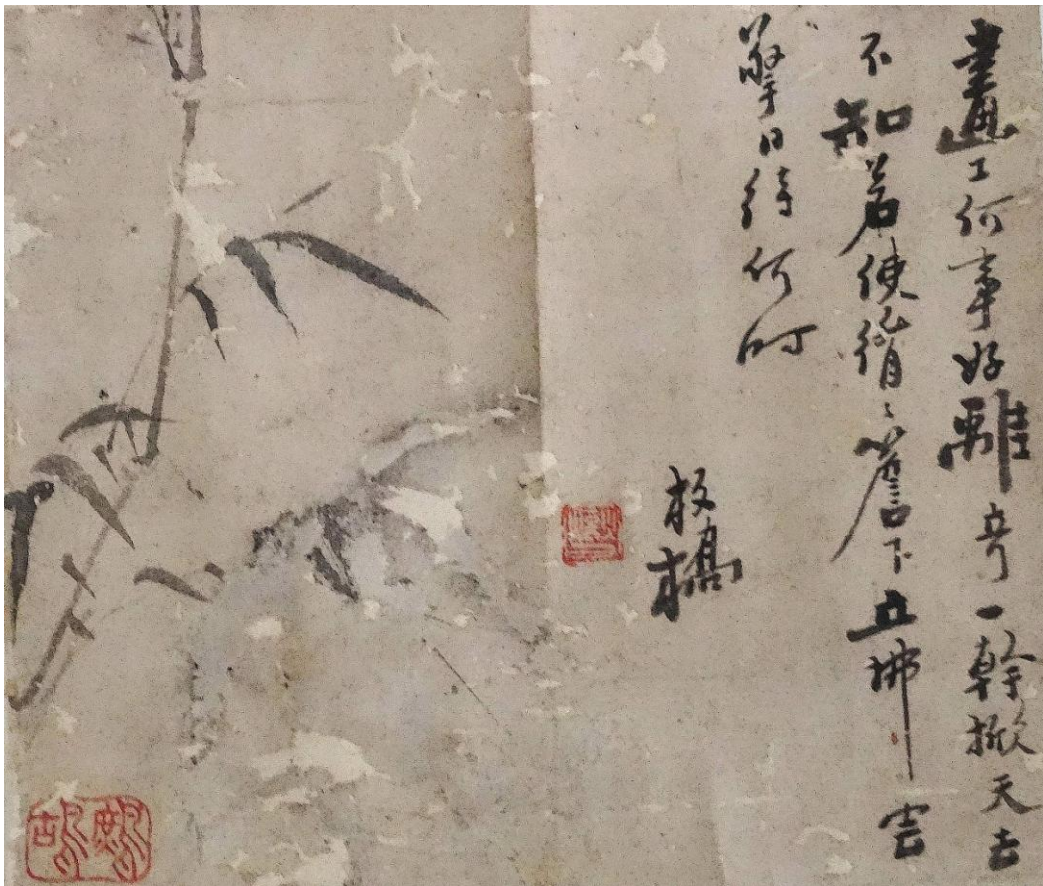 畫工何事好離奇一幹掀天去
不知若使循〻簷下立拂雲
擎日待何時
板橋
鷓鴣